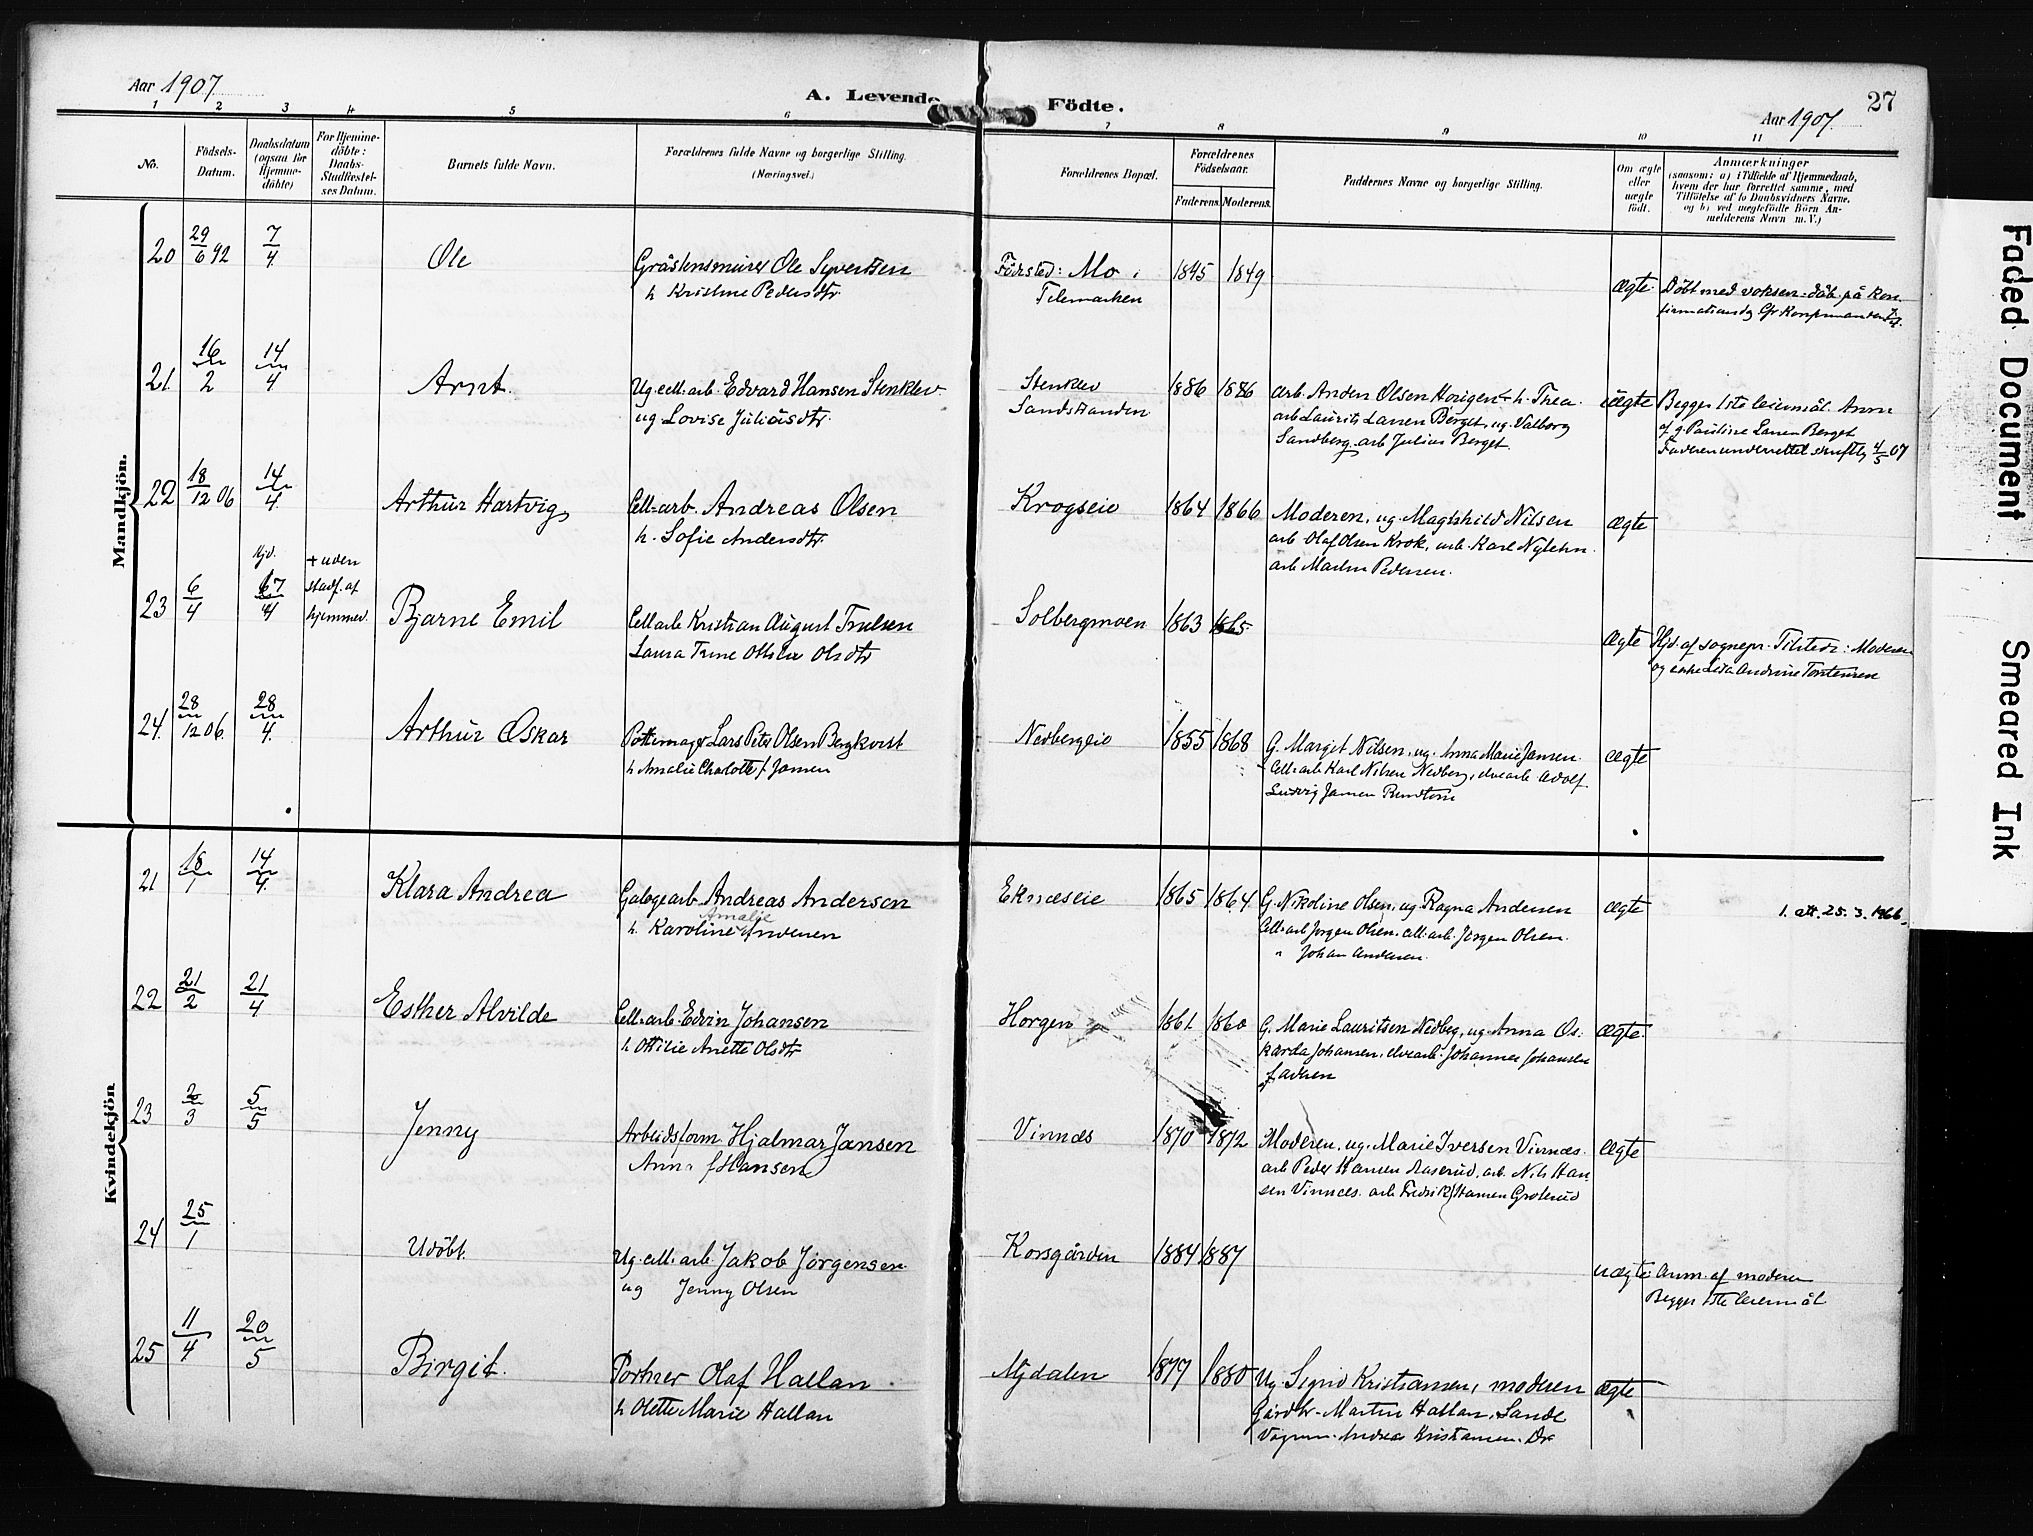 Aar 1907
A. Levende Födte.
27
Aar 1907
1 2 3 4 5 6 7 8 9 10 11
No.
Födsels-
Datum.
Daabsdatum
(ogsaa for
Hjemme-
döbte)
For Hjemme-
döbte:
Daabs-
Stadfestel-
ses Datum.
Barnets fulde Navn.
Forældrenes fulde Navne og borgerlige Stilling.
(Næringsvei.)
Forældrenes Bopæl.
Forældrenes
Födselsaar.
Faderens. Moderens.
Faddernes Navne og borgerlige Stilling.
Om ægte
eller
uægte
födt.
Anmærkninger
(saasom: a) i Tilfælde af Hjemmedaab,
hvem der har forrettet samme, med
Tilföielse af to Daabsvidners Navne,
og b) ved uægtefödte Börn An-
melderens Navn m. V.)
Mandkjön.
20 29/6 92 7/4 Ole
Gråstensmurer Ole Syvertsen
h. Kristine Pedersdtr.
Födested: Mo i
Telemarken
1845 1849
ægte
Döbt med voksen-dåb på kon-
21 16/2 14/4 Arnt.
Ug. cell. arb. Edvard Hansen Stenklev
ug Lovise Juliusdtr.
Stenklev
Sandstranden
1886 1886
arb. Anders Olsen Horgen + h. Thea
arb Laurits Larsen Berget, ug. Valborg
Sandberg. arb Julius Berget.
uægte
Begges 1ste leiermål. Anm
af g. Pauline Larsen Berget
Faderen underrettet skriftlig 4/5 07
22 18/12 06 14/4 Arthur Hartvig
Cell-arb. Andreas Olsen
h. Sofie Andersdtr.
Krogseie
1864 1866
Moderen, ug. Magthild Nilsen
arb Olaf Olsen Krok, arb. Karl Nylehn
arb Martin Pedersen.
ægte
23 6/4 Hjd. 7/4
+ uden
stadf. af
hjemmed.
Bjarne Emil
Cell arb Kristian August Truelsen
Laura Trine Ottilie Olsdtr
Solbergmoen
1863 1865
ægte
Hjd. af sognepr. Tilsted: Moderen
og enke Lisa Andrine Torstensen
24. 28/12 06. 28/4. Arthur Oskar
Pottemager Lars Peter Olsen Bergkvist
h Amalie Charlotte f. Jansen
Nedbergeie
1855 1868
G. Margit Nilsen, ug. Anna Marie Jansen
Cell. arb Karl Nilsen Nedberg, elvearb Adolf
Ludvig Jansen
ægte
Kvindekjön
21 18/1 14/4. Klara Andrea
Galogearb. Andreas Andersen
Amalie
h. Karoline Andersen
Eknæseie
1865 1864
G. Nikoline Olsen, ug. Ragna Andersen
Cell. arb Jörgen Olsen, cell. arb. Jörgen Olsen.
" Johan Andersen.
ægte
1. att. 25. 3. 1966.
22 21/2 21/4 Esther Alvilde
Cell-arb. Edvin Johansen
h Ottilie Anette Olsdtr
Horgen
1861. 1860
G. Marie Lauritsen Nedberg, ug. Anna Os-
karda Johansen, elvearb. Johannes Johansen
faderen
ægte.
23 20/3 5/5 Jenny
Arbeidsform. Hjalmar Jansen
Anna f Hansen
Vinnæs
1870 1872
Moderen, ug. Marie Iversen Vinnæs.
arb Peder Hansen Aaserud, arb. Nils Han-
sen Vinnæs. arb Fredrik Hansen Groterud
ægte
24 25/1 Udöbt.
Ug. cell. arb Jakob Jörgensen
ug Jenny Olsen
Korsgården
1884 1887
uægte
Anm. af moderen
Begges 1ste leiermål
25 11/4 20/5 Birgit.
Portner Olaf Hallan
h Olette Marie Hallan
Nydalen
1877 1880
Ug. Sigrid Kristiansen, moderen
Gårdbr. Martin Hallan, Sande
Vognm. Andreas Kristiansen. Dr
ægte
Faded Document
Smeared Ink